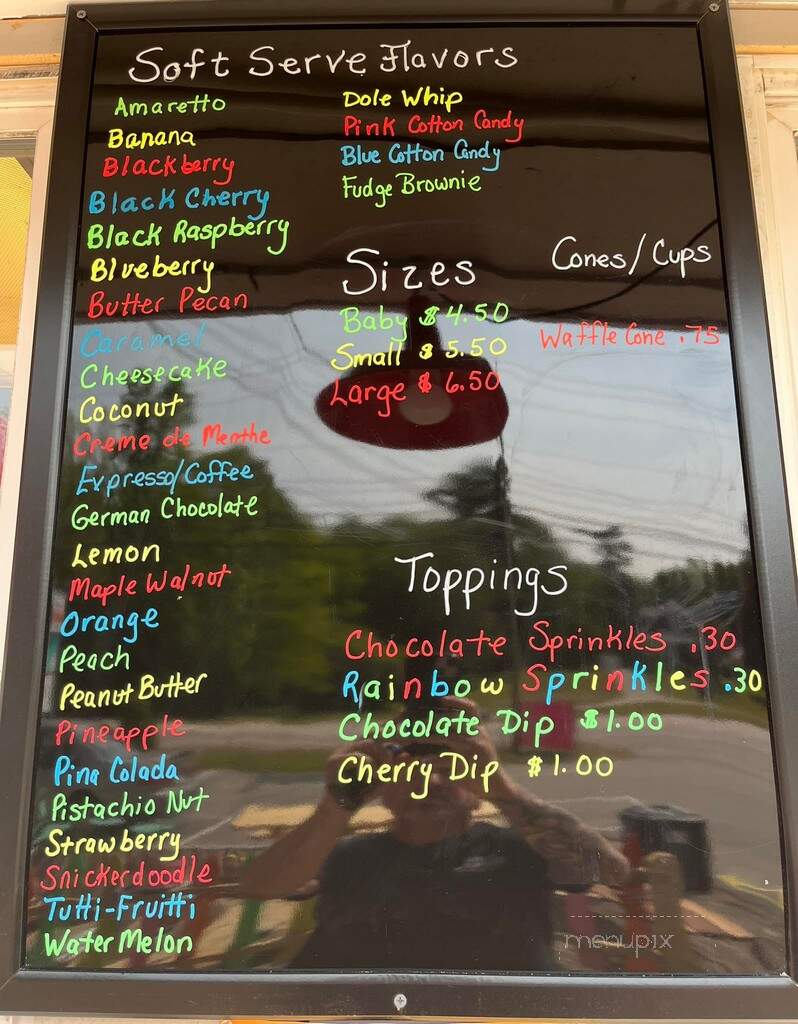 Soft Serve Flavors
Amaretto
Banana
Blackberry
Black Cherry
Black Raspberry
Blueberry
Butter Pecan
Caramel
Cheesecake
Coconut
Creme de Menthe
Expresso/Coffee
German Chocolate
Lemon
Maple Walnut
Orange
Peach
Peanut Butter
Pineapple
Pina Colada
Pistachio Nut
Strawberry
Snickerdoodle
Tutti-Fruitti
Water Melon
Dole Whip
Pink Cotton Candy
Blue Cotton Candy
Fudge Brownie
Sizes
Baby $4.50
Small $5.50
Large $6.50
Cones/Cups
Waffle Cone .75
Toppings
Chocolate Sprinkles .30
Rainbow Sprinkles .30
Chocolate Dip $1.00
Cherry Dip $1.00
menupix